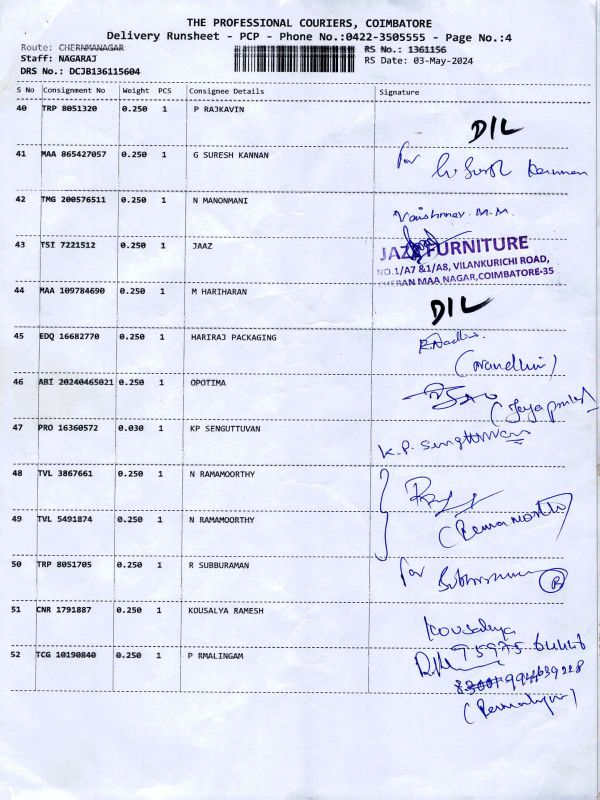 THE PROFESSIONAL COURIERS, COIMBATORE
Delivery Runsheet - PCP - Phone No.:0422-3505555 - Page No.:4
Route: CHERNMANAGAR
Staff: NAGARAJ
DRS No.: DCJB136115604
RS No.: 1361156
RS Date: 03-May-2024
S No Consignment No Weight PCS Consignee Details Signature
40 TRP 8051320 0.250 1 P RAJKAVIN
D/L
41 MAA 865427057 0.250 1 G SURESH KANNAN
for
42 TMG 200576511 0.250 1 N MANONMANI
Vaishnav. M.M.
43 TSI 7221512 0.250 1 JAAZ
JAZZ FURNITURE
NO.1/A7 &1/A8, VILANKURICHI ROAD,
CHERAN MAA NAGAR,COIMBATORE-35
44 MAA 109784690 0.250 1 M HARIHARAN
D/L
45 EDQ 16682770 0.250 1 HARIRAJ PACKAGING
(Nandhini)
46 ABI 20240465021 0.250 1 OPOTIMA
47 PRO 16360572 0.030 1 KP SENGUTTUVAN
K.P. Senguttuvan
48 TVL 3867661 0.250 1 N RAMAMOORTHY
49 TVL 5491874 0.250 1 N RAMAMOORTHY
(Ramamoorthy)
50 TRP 8051705 0.250 1 R SUBBURAMAN
for
51 CNR 1791887 0.250 1 KOUSALYA RAMESH
Kousalya
52 TCG 10190840 0.250 1 P RMALINGAM